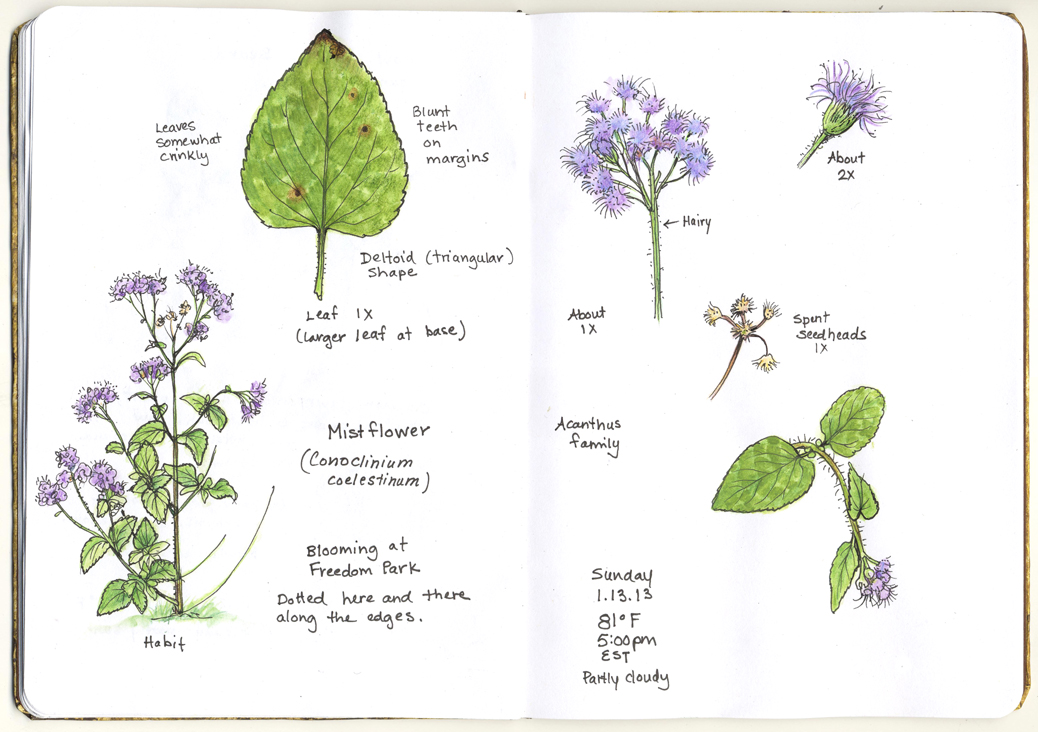 Leaves
somewhat
crinkly
Blunt
teeth
on
margins
Deltoid (triangular)
shape
Leaf 1X
(larger leaf at base)
Mistflower
(Conoclinium
coelestinum)
Blooming at
Freedom Park
Dotted here and there
along the edges.
Habit
Hairy
About
1X
About
2X
Spent
seedheads
1X
Acanthus
family
Sunday
1.13.13
81°F
5:00pm
EST
Partly cloudy